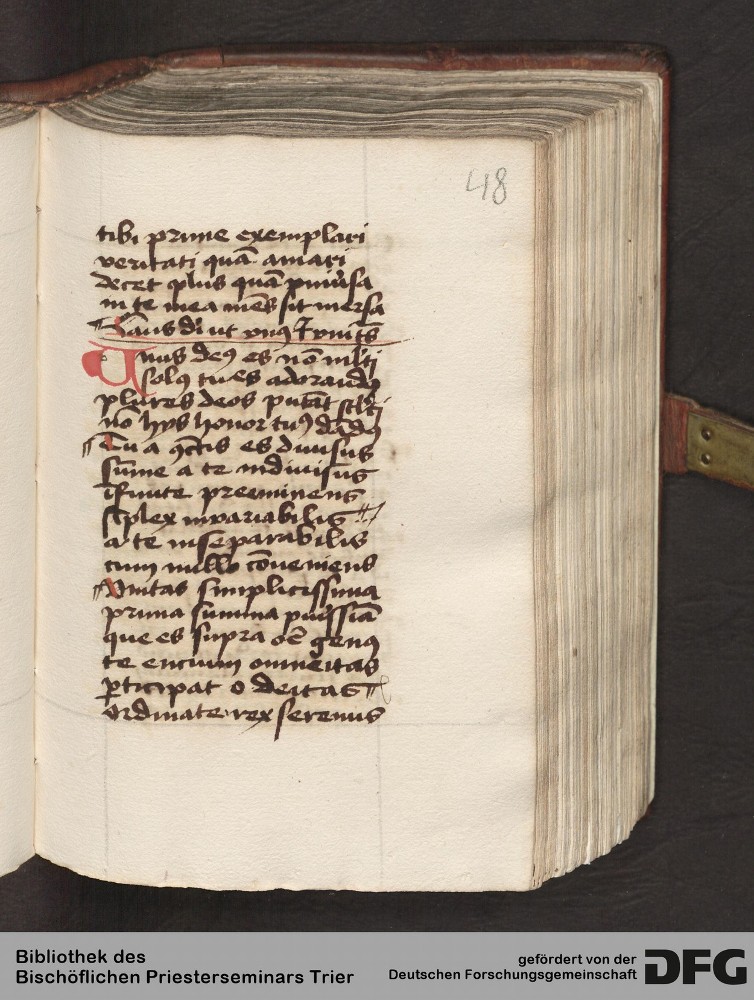 48
tibi prime exemplari
veritati quā amari
decet plus quā
in te mea mēs sit mersa
Laus di ut
Unus deꝯ es nō mlti
solꝯ tu es adorandꝯ
plures deos putāt stlti
nō hys honor tuꝯ dādꝯ
Tu a es divisus
sūme a te indivisus
ifinite preeminens
siplex invariabilis
a te inseparabilis
cum nullo cōveniens
Vnitas simplicissima
prima summa
que es supra oē genꝯ
te encium omneitas
ꝑticipat o deitas
ordinate rex serenus
Bibliothek des
Bischöflichen Priesterseminars Trier
gefördert von der
Deutschen Forschungsgemeinschaft
DFG